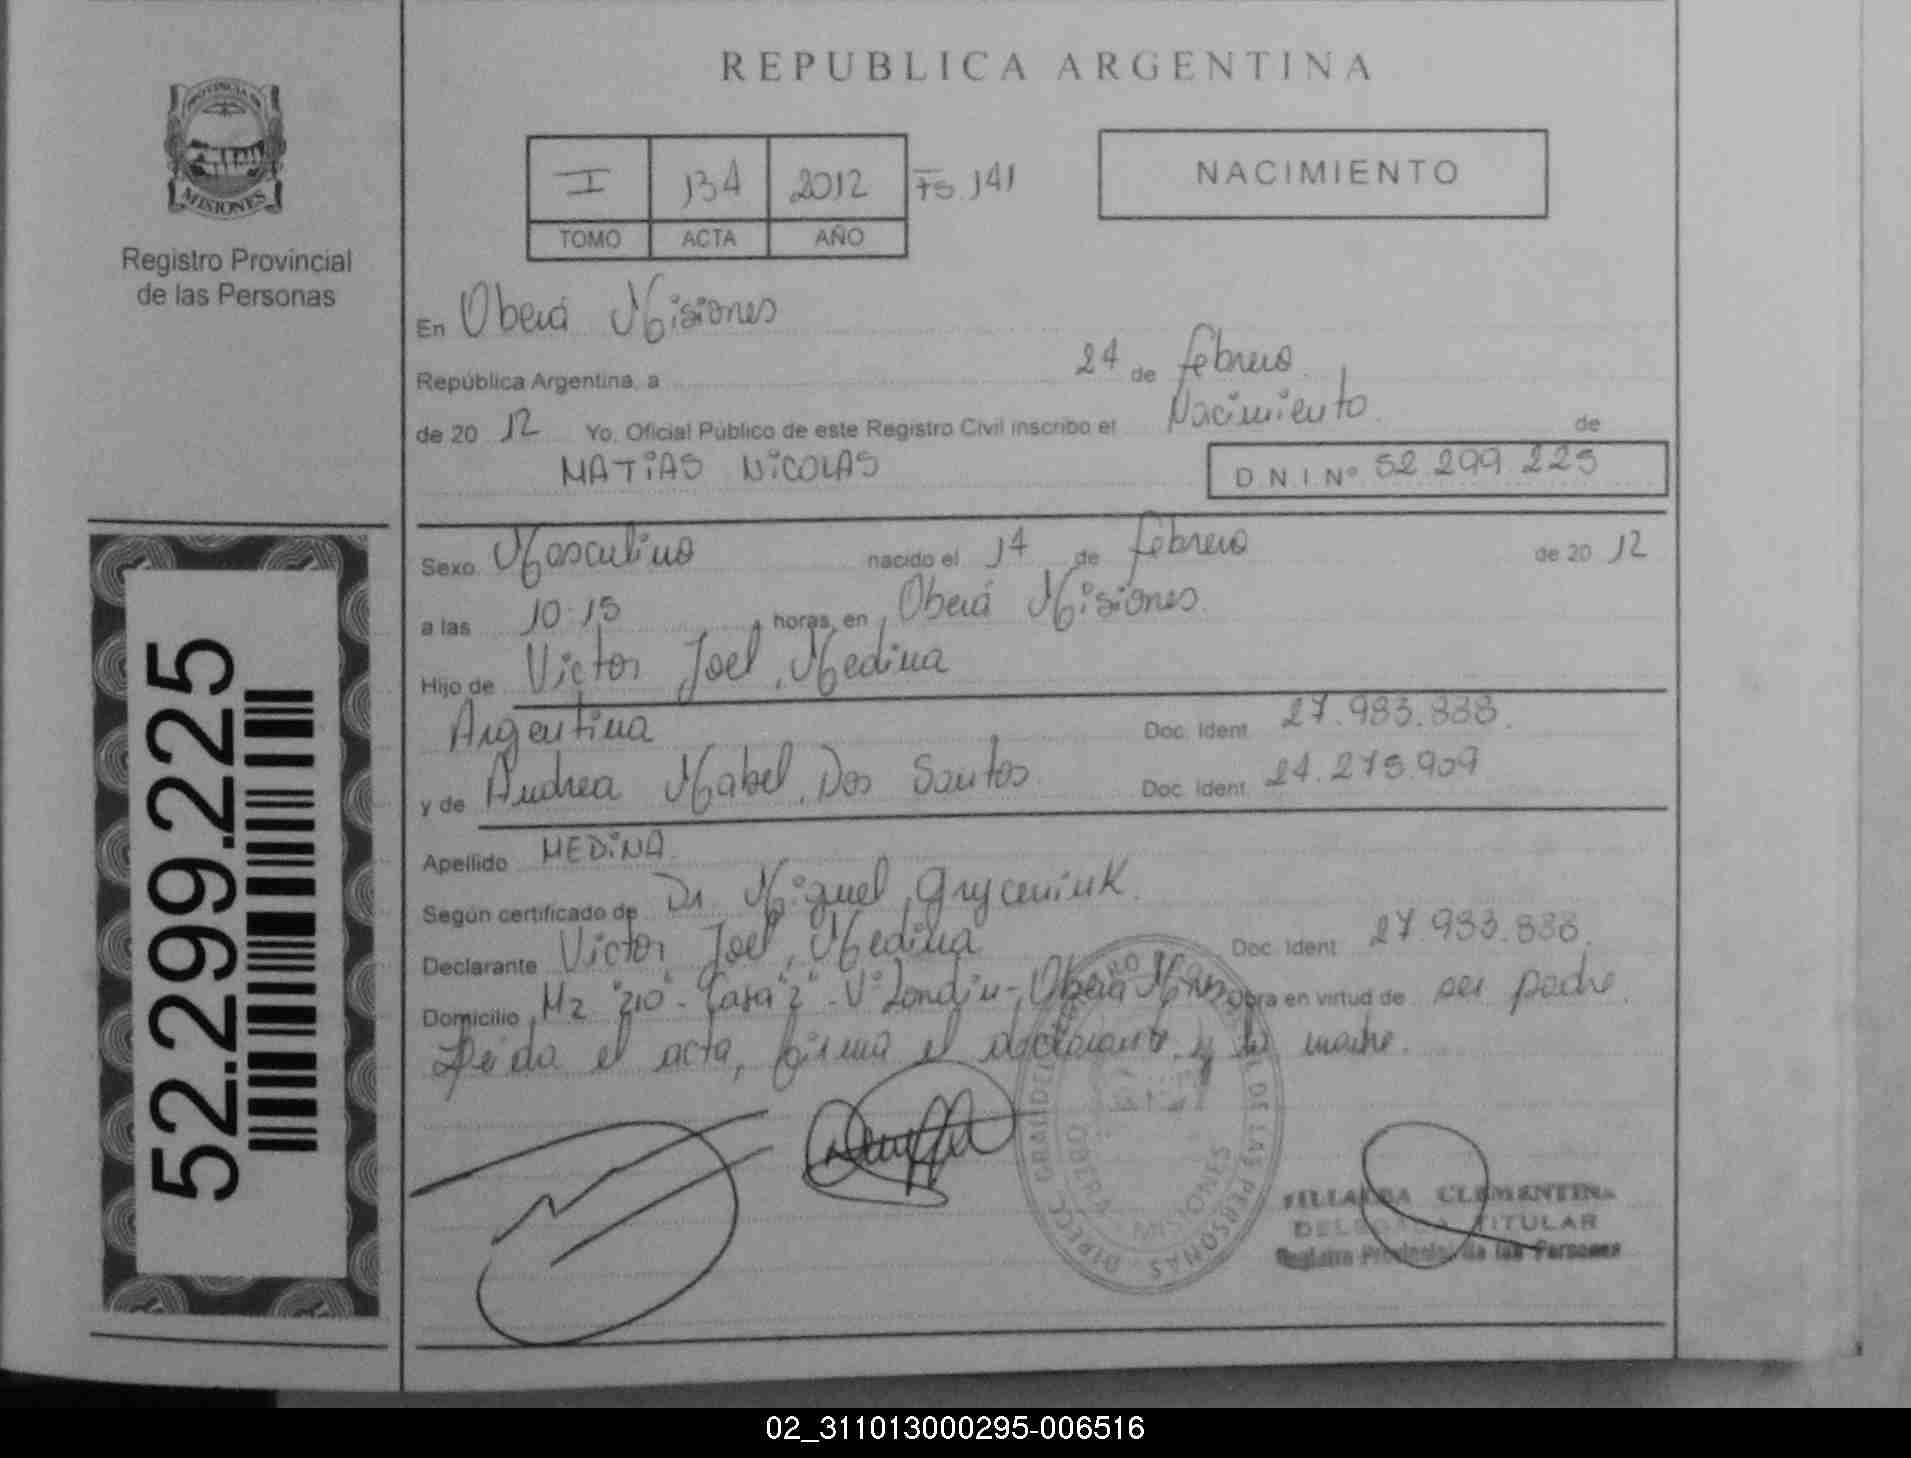 PROVINCIA DE
MISIONES
Registro Provincial
de las Personas
52.299.225
REPUBLICA ARGENTINA
I 134 2012 Fs. 141
TOMO ACTA AÑO
NACIMIENTO
En Oberá Misiones
República Argentina, a 24 de febrero
de 20 12 Yo, Oficial Público de este Registro Civil inscribo el Nacimiento de
MATiAS NiCOLAS D N I Nº 52.299.225
Sexo Masculino nacido el 14 de febrero de 20 12
a las 10:15 horas, en Oberá Misiones.
Hijo de Victor Joel, Medina
Argentina Doc. Ident. 27.933.838.
y de Andrea Mabel, Dos Santos Doc. Ident. 24.275.909
Apellido MEDiNA.
Según certificado de Dr. Miguel, Gryceniuk.
Declarante Victor Joel, Medina Doc. Ident. 27.933.838.
Domicilio Mz "210"- Casa "2" - Vº Londin-, Oberá Mnes. Obra en virtud de ser padre.
Leida el acta, firma el declarante y la madre.
DIRECC. GRAL. DEL REGISTRO PROVINCIAL DE LAS PERSONAS
OBERA MISIONES
VILLALBA CLEMENTINA
DELEGADA TITULAR
Registro Provincial de las Personas
02_311013000295-006516